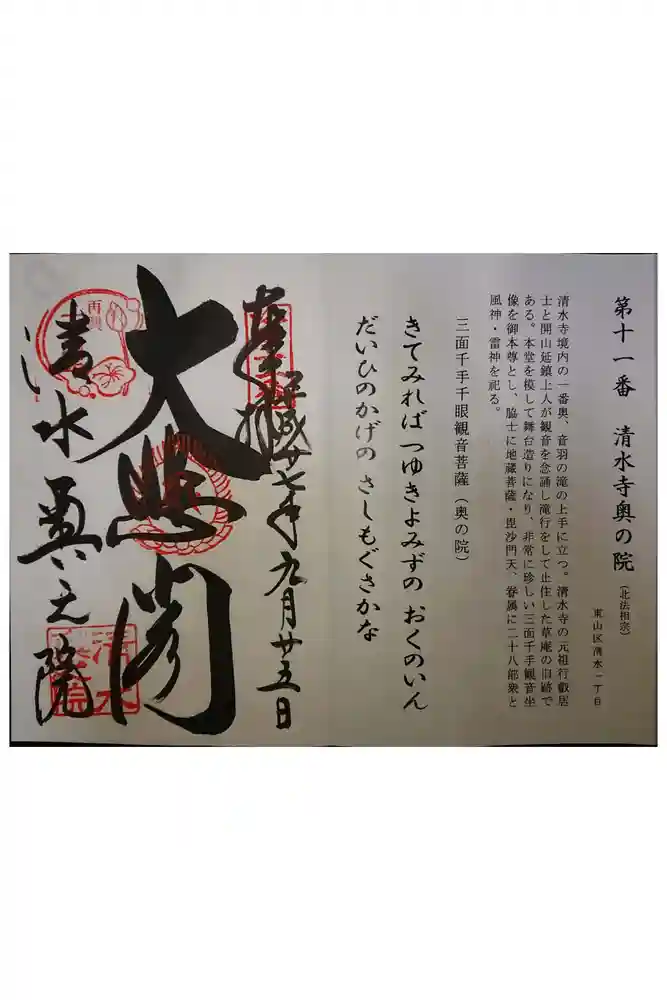 第十一番 清水寺奥の院
(北法相宗)
東山区清水一丁目
清水寺境内の一番奥、音羽の滝の上手に立つ。清水寺の元祖行叡居
士と開山延鎮上人が観音を念誦し滝行をして止住した草庵の旧跡で
ある。本堂を模して舞台造りになり、非常に珍しい三面千手観音坐
像を御本尊とし、脇士に地蔵菩薩・毘沙門天、眷属に二十八部衆と
風神・雷神を祀る。
三面千手千眼観音菩薩(奥の院)
きてみればつゆきよみずの おくのいん
だいひのかげの さしもぐさかな
奉拝
平成廿七年九月廿五日
大悲閣
清水奥之院